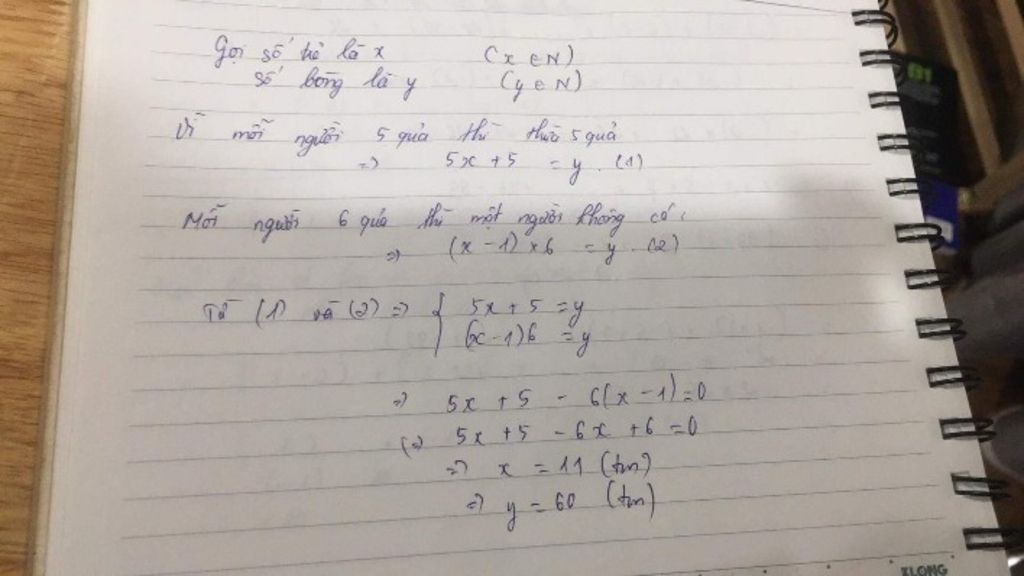 Gọi số trẻ là x (x ∈ N)
số bóng là y (y ∈ N)
Vì mỗi người 5 quả thì thừa 5 quả
=> 5x + 5 = y . (1)
Mỗi người 6 quả thì một người không có.
=> (x - 1) x 6 = y . (2)
Từ (1) và (2) => { 5x + 5 = y
(x - 1)6 = y
=> 5x + 5 - 6(x - 1) = 0
(=> 5x + 5 - 6x + 6 = 0
=> x = 11 (tm)
=> y = 60 (tm)
KLONG